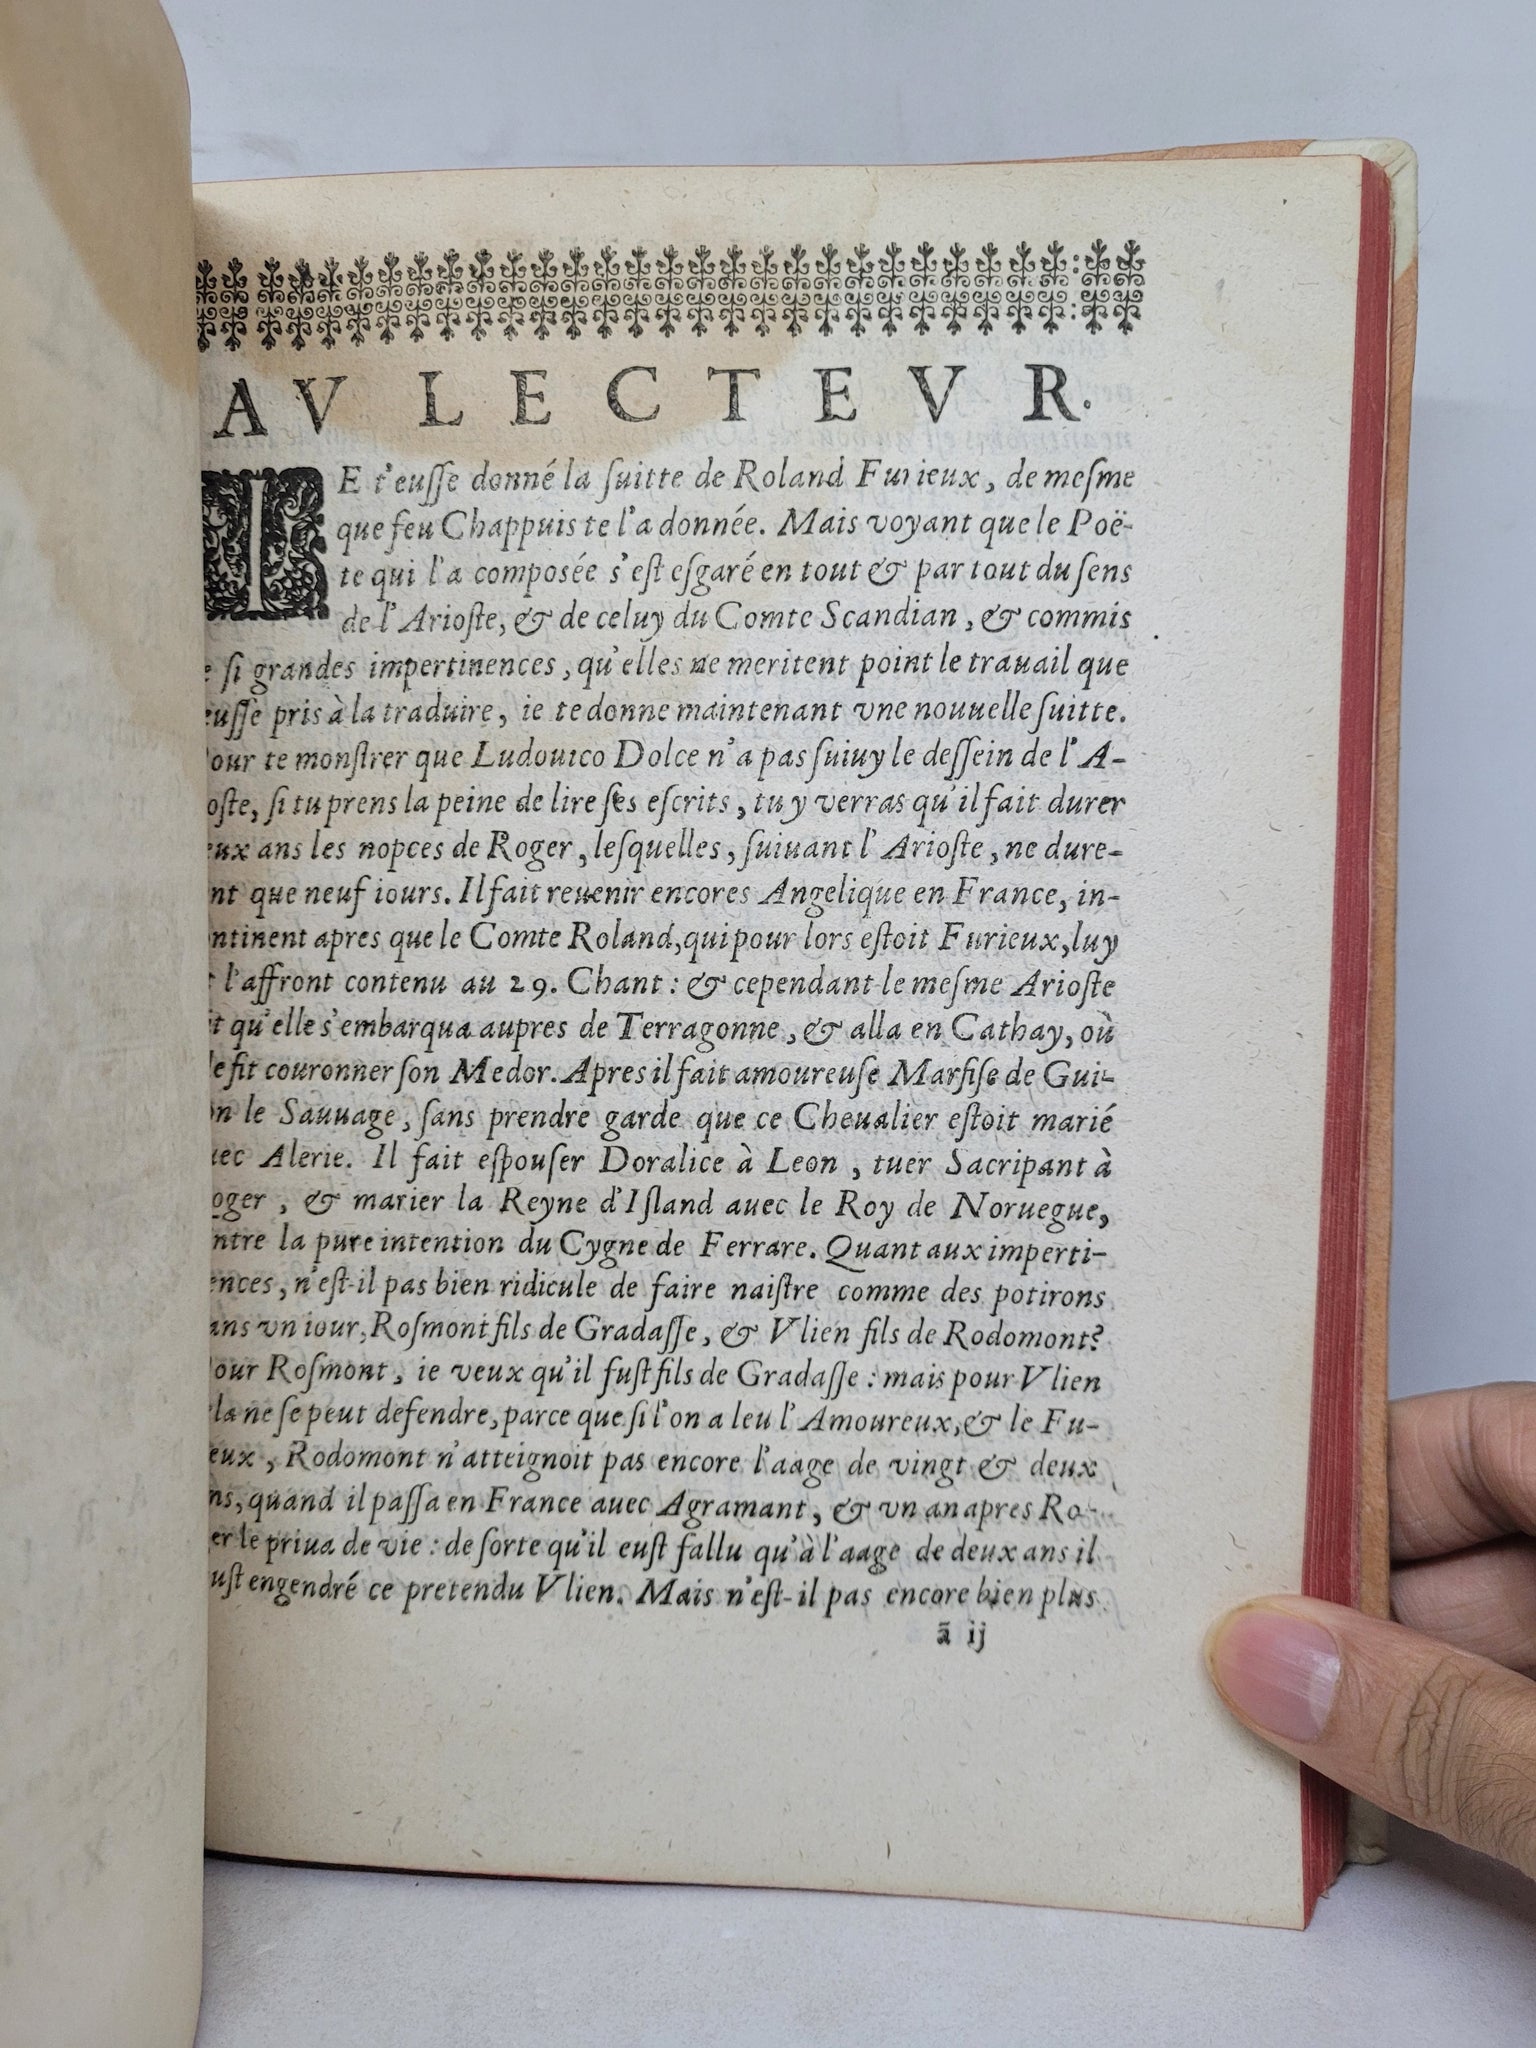 AV LECTEVR.
IE t'eusse donné la suitte de Roland Furieux, de mesme
que feu Chappuis te l'a donnée. Mais voyant que le Poë-
te qui l'a composée s'est esgaré en tout & par tout du sens
de l'Arioste, & de celuy du Comte Scandian, & commis
si grandes impertinences, qu'elles ne meritent point le trauail que
eusse pris à la traduire, ie te donne maintenant vne nouuelle suitte.
our te monstrer que Ludouico Dolce n'a pas suiuy le dessein de l'A-
oste, si tu prens la peine de lire ses escrits, tu y verras qu'il fait durer
eux ans les nopces de Roger, lesquelles, suiuant l'Arioste, ne dure-
nt que neuf iours. Il fait reuenir encores Angelique en France, in-
ontinent apres que le Comte Roland, qui pour lors estoit Furieux, luy
t l'affront contenu au 29. Chant: & cependant le mesme Arioste
it qu'elle s'embarqua aupres de Terragonne, & alla en Cathay, où
le fit couronner son Medor. Apres il fait amoureuse Marfise de Gui-
on le Sauuage, sans prendre garde que ce Cheualier estoit marié
uec Alerie. Il fait espouser Doralice à Leon, tuer Sacripant à
oger, & marier la Reyne d'Island auec le Roy de Noruegue,
ntre la pure intention du Cygne de Ferrare. Quant aux imperti-
ences, n'est-il pas bien ridicule de faire naistre comme des potirons
ans vn iour, Rosmont fils de Gradasse, & Vlien fils de Rodomont?
our Rosmont, ie veux qu'il fust fils de Gradasse: mais pour Vlien
la ne se peut defendre, parce que si l'on a leu l'Amoureux, & le Fu-
eux, Rodomont n'atteignoit pas encore l'aage de vingt & deux
ns, quand il passa en France auec Agramant, & vn an apres Ro-
er le priua de vie: de sorte qu'il eust fallu qu'à l'aage de deux ans il
ust engendré ce pretendu Vlien. Mais n'est-il pas encore bien plus
ã ij